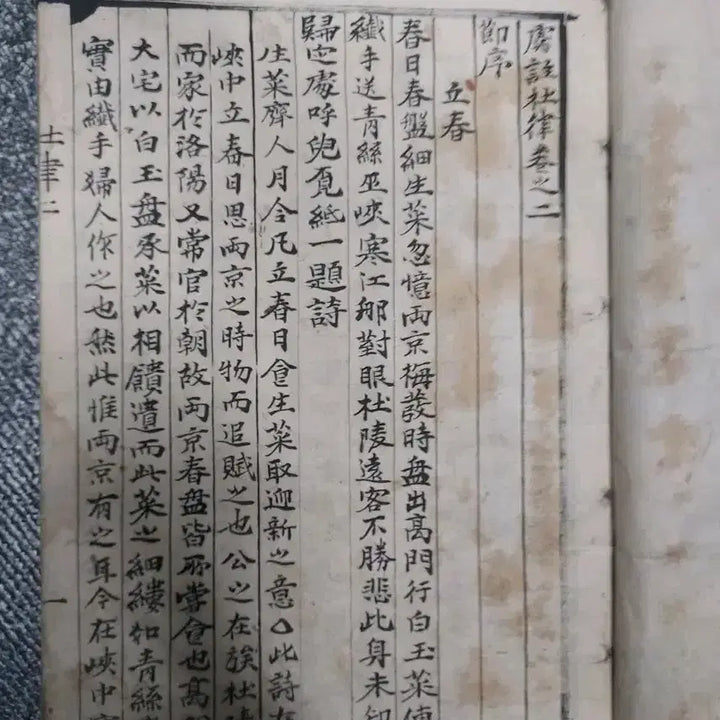 虞註杜律卷之二
節序
立春
春日春盤細生菜忽憶兩京梅發時盘出高門行白玉菜傳
纖手送青絲巫峽寒江那對眼杜陵遠客不勝悲此身未知
歸定處呼兒覓紙一題詩
生菜齊人月令凡立春日食生菜取迎新之意○此詩
峽中立春日思兩京之時物而追賦之也公之在族杜陵
而家於洛陽又常官於朝故兩京春盘皆所嘗食也高
大宅以白玉盘承菜以相饋遺而此菜之細縷如青絲
實由纖手婦人作之也然此惟兩京有之耳今在峽中
土聿二
一